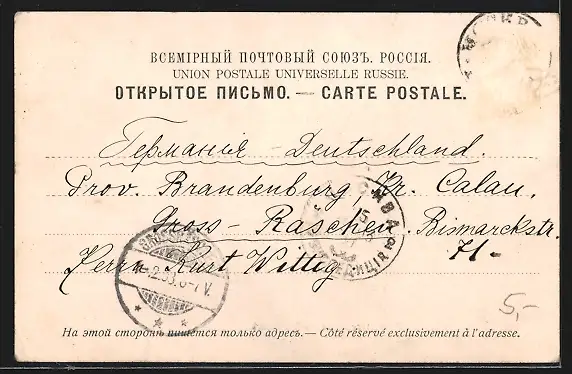 ВСЕМІРНЫЙ ПОЧТОВЫЙ СОЮЗЪ. РОССІЯ.
UNION POSTALE UNIVERSELLE RUSSIE.
ОТКРЫТОЕ ПИСЬМО. — CARTE POSTALE.
Германія - Deutschland.
Prov. Brandenburg, Kr. Calau,
Gross-Raschen. Bismarckstr.
71-
Herrn Kurt Wittig
5,-
На этой сторонѣ пишется только адресъ. — Côté réservé exclusivement à l'adresse.